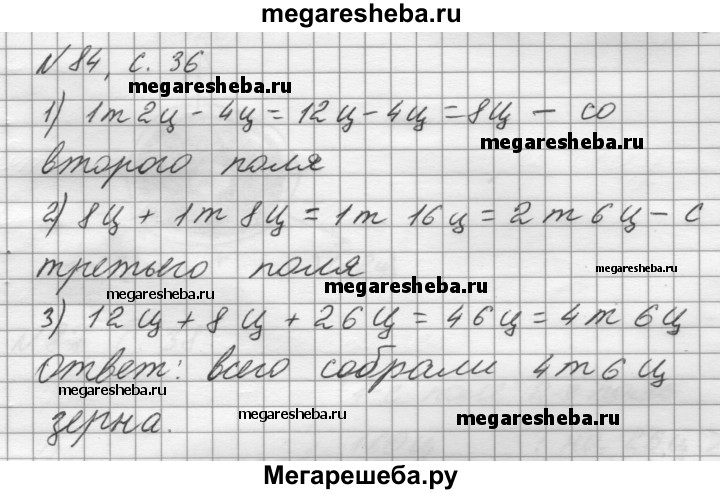 megaresheba.ru
№ 84, с. 36
megaresheba.ru
1) 1т 2ц - 4ц = 12ц - 4ц = 8ц - со
megaresheba.ru
второго поля
2) 8ц + 1т 8ц = 1т 16ц = 2т 6ц - с
третьего поля
megaresheba.ru
megaresheba.ru
megaresheba.ru
3) 12ц + 8ц + 26ц = 46ц = 4т 6ц
Ответ: всего собрали 4т 6ц
megaresheba.ru
зерна.
megaresheba.ru
megaresheba.ru
Мегарешеба.ру